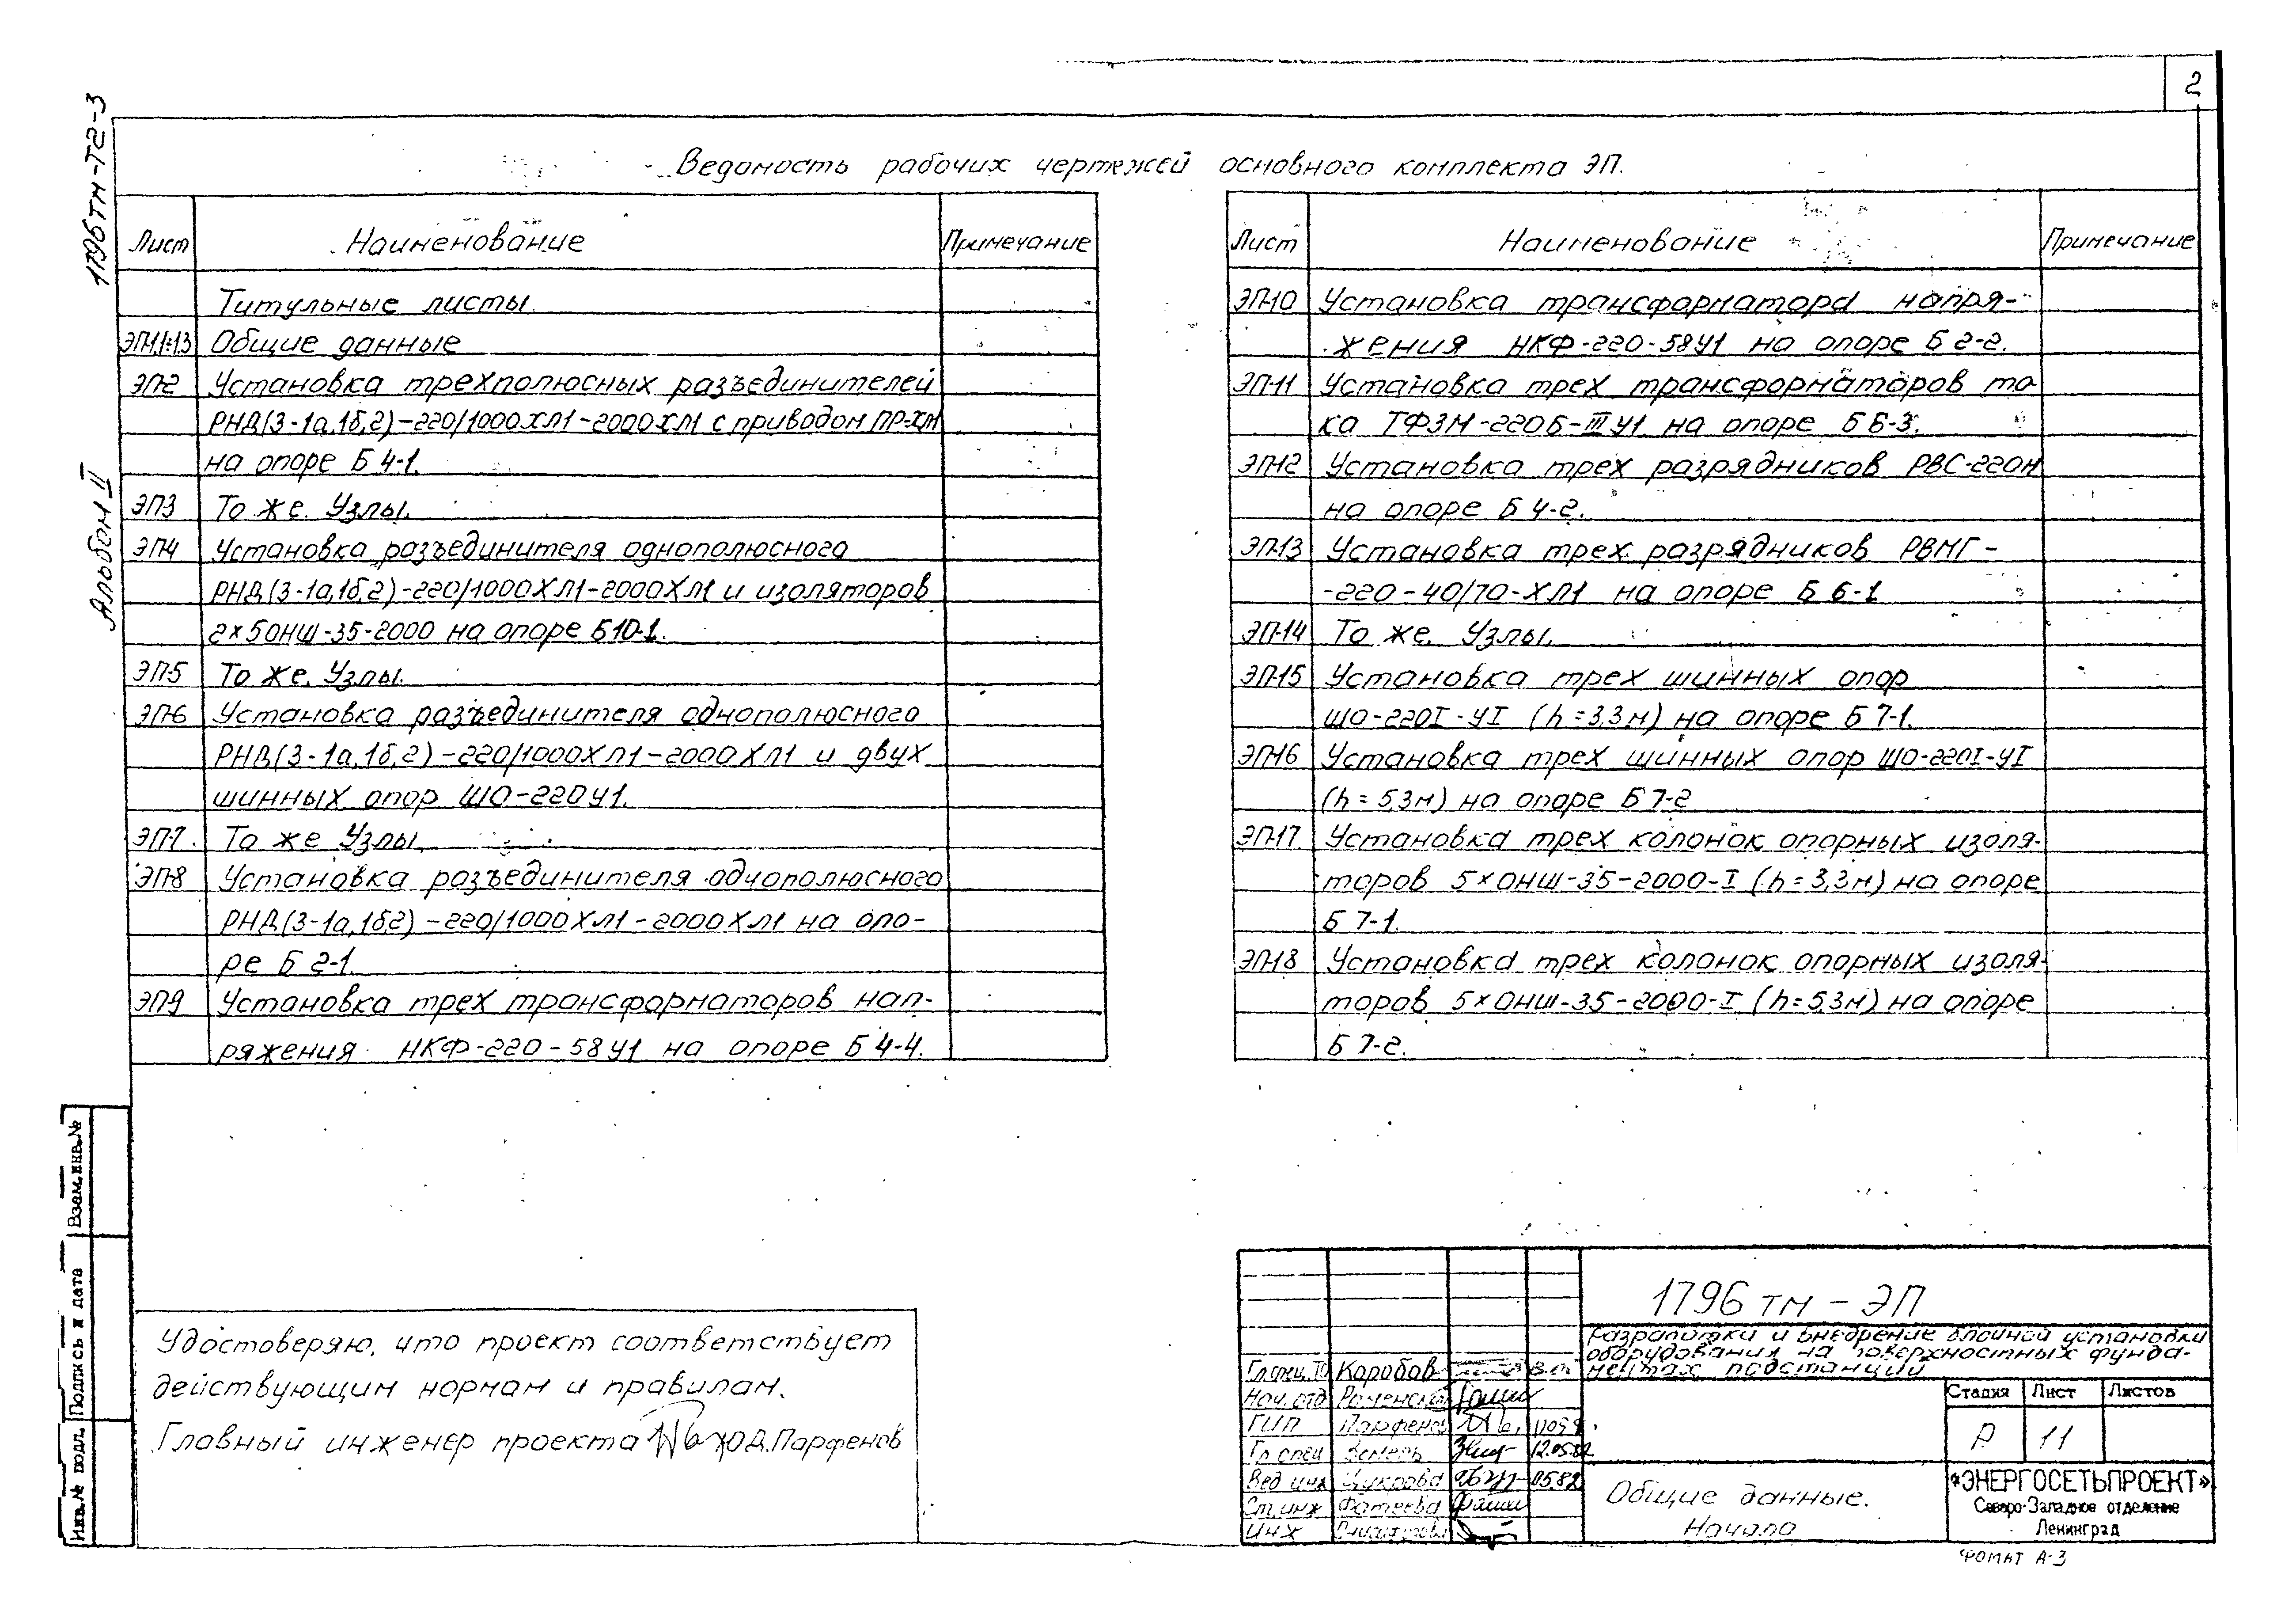 2
1796тм-т2-3
Альбом II
Ведомость рабочих чертежей основного комплекта ЭП.
Лист Наименование Примечание
Титульные листы
ЭП-1.1÷1.3 Общие данные
ЭП-2 Установка трехполюсных разъединителей
РНД(3-1а,1б,2)-220/1000ХЛ1-2000ХЛ1 с приводом ПР-ХЛ1
на опоре Б 4-1.
ЭП-3 То же. Узлы.
ЭП-4 Установка разъединителя однополюсного
РНД(3-1а,1б,2)-220/1000ХЛ1-2000ХЛ1 и изоляторов
2×5ОНШ-35-2000 на опоре Б10-1.
ЭП-5 То же. Узлы.
ЭП-6 Установка разъединителя однополюсного
РНД(3-1а,1б,2)-220/1000ХЛ1-2000ХЛ1 и двух
шинных опор ШО-220У1.
ЭП-7 То же Узлы.
ЭП-8 Установка разъединителя однополюсного
РНД(3-1а,1б,2)-220/1000ХЛ1-2000ХЛ1 на опо-
ре Б 2-1.
ЭП-9 Установка трех трансформаторов нап-
ряжения НКФ-220-58У1 на опоре Б 4-4.
Лист Наименование Примечание
ЭП-10 Установка трансформатора напря-
жения НКФ-220-58У1 на опоре Б 2-2.
ЭП-11 Установка трех трансформаторов то-
ка ТФЗМ-220Б-III У1 на опоре Б 6-3.
ЭП-12 Установка трех разрядников РВС-220М
на опоре Б 4-2.
ЭП-13 Установка трех разрядников РВМГ-
-220-40/70-ХЛ1 на опоре Б 6-1
ЭП-14 То же. Узлы.
ЭП-15 Установка трех шинных опор
ШО-220I-УI (h=3,3м) на опоре Б 7-1.
ЭП-16 Установка трех шинных опор ШО-220I-УI
(h=5,3м) на опоре Б 7-2
ЭП-17 Установка трех колонок опорных изоля-
торов 5×ОНШ-35-2000-I (h=3,3м) на опоре
Б 7-1.
ЭП-18 Установка трех колонок опорных изоля-
торов 5×ОНШ-35-2000-I (h=5,3м) на опоре
Б 7-2.
Взам.инв.№
Подпись и дата
Инв.№ подл.
Удостоверяю, что проект соответствует
действующим нормам и правилам.
Главный инженер проекта Ю.Д.Парфенов
1796 тм - ЭП
Разработки и внедрение блочной установки
оборудования на поверхностных фунда-
ментах подстанций
Гл.спец.ТО Коробов
Нач.отд Роменский
ГИП Парфенов
Гл спец Земель 12.05.82
Вед инж Цукрова 05.82
Ст.инж Фатеева
Инж
Стадия Лист Листов
Р 1.1
Общие данные.
Начало
«ЭНЕРГОСЕТЬПРОЕКТ»
Северо-Западное отделение
Ленинград
ФОРМАТ А-3